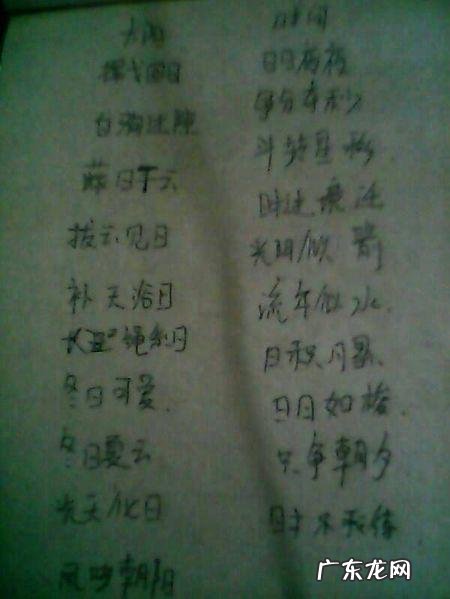 太阳
挥戈回日
白驹过隙
蔽日干云
拔云见日
补天浴日
长绳系日
冬日可爱
冬日夏云
光天化日
凤鸣朝阳
时间
争分夺秒
斗转星移
时过境迁
光阴似箭
流年似水
日积月累
日月如梭
只争朝夕
时不我待
广东龙网